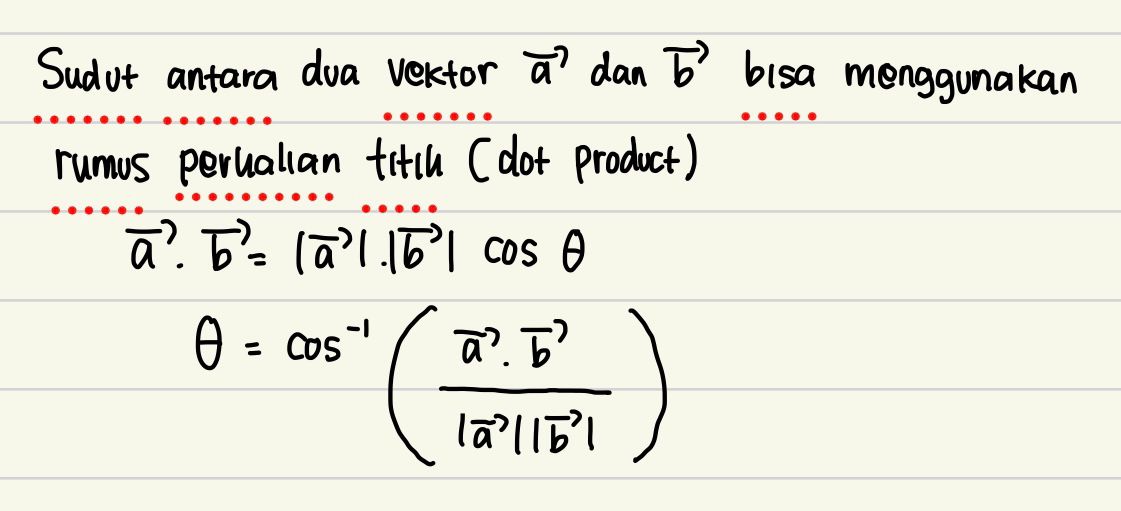 Sudut antara dua vektor a⃗ dan b⃗ bisa menggunakan
rumus perkalian titik (dot product)
a⃗ . b⃗ = |a⃗| . |b⃗| cos θ
θ = cos⁻¹ ( a⃗ . b⃗ / |a⃗| |b⃗| )